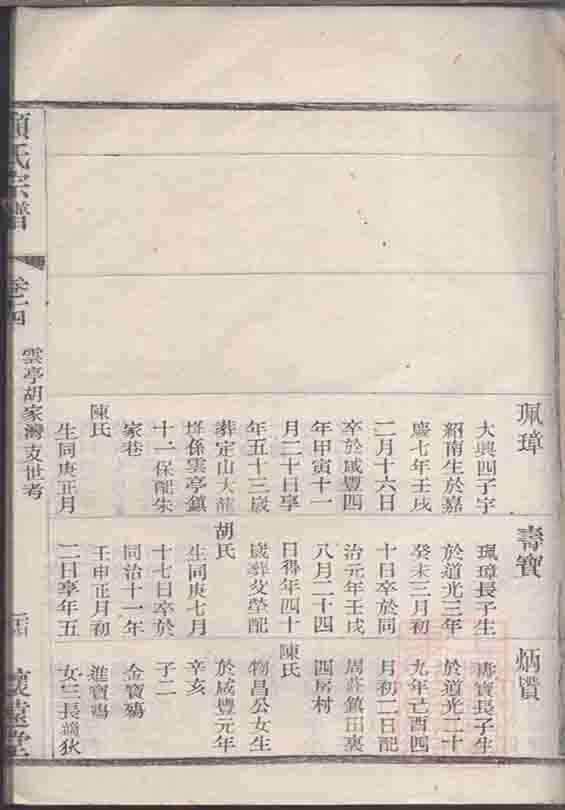 氏宗譜
雲亭胡家灣支世考
珮璋
大興四子字
紹南生於嘉
慶七年壬戌
二月十六日
卒於咸豐四
年甲寅十一
月二十日享
年五十三歲
葬定山大龍
係雲亭鎮
十一保配朱
家巷
陳氏
生同庚正月
壽寶
珮璋長子生
於道光三年
癸未三月初
十日卒於同
治元年壬戌
八月二十四
日得年四十
歲葬父塋配
胡氏
生同庚七月
十七日卒於
同治十一年
壬申正月初
二日享年五
炳
壽寶長子生
於道光二十
九年己酉四
月初二日配
周莊鎮田裏
四房村
陳氏
物昌公女生
於咸豐元年
辛亥
子二
金寶殤
進寶殤
女三長適狄